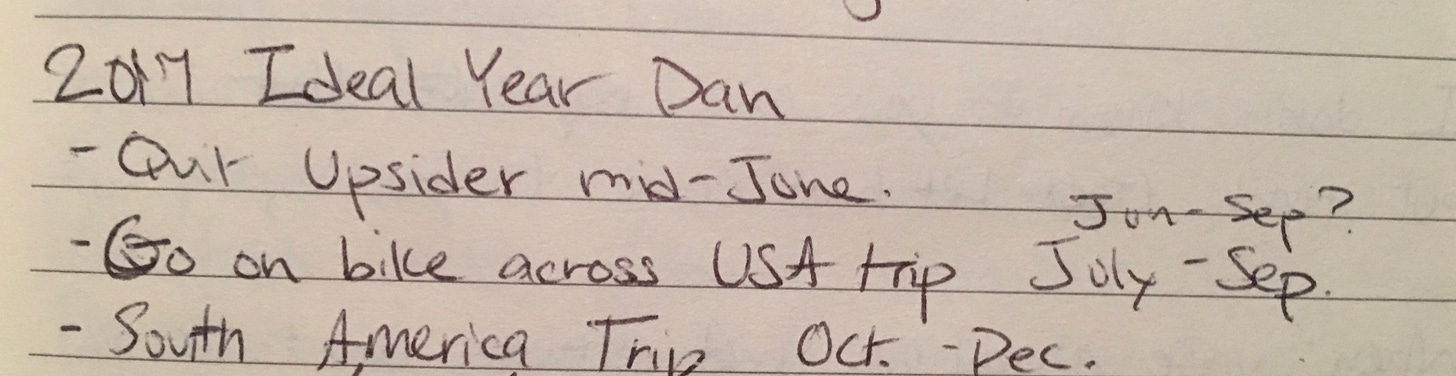 2017 Ideal Year Dan
- Quit Upsider mid-June.
Jun - Sep?
- Go on bike across USA trip July - Sep.
- South America Trip Oct. - Dec.